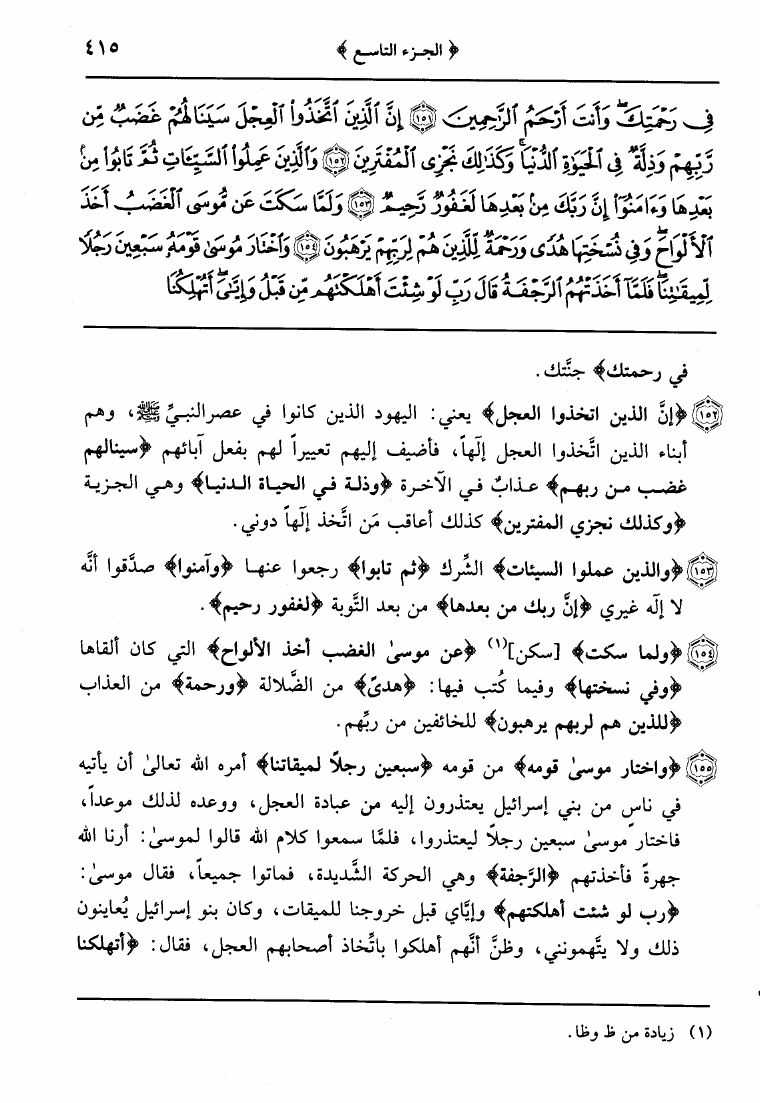 ﴿ الجزء التاسع ﴾ ٤١٥
فِى رَحْمَتِكَ ۖ وَأَنتَ أَرْحَمُ ٱلرَّٰحِمِينَ ١٥١ إِنَّ ٱلَّذِينَ ٱتَّخَذُوا۟ ٱلْعِجْلَ سَيَنَالُهُمْ غَضَبٌ مِّن
رَّبِّهِمْ وَذِلَّةٌ فِى ٱلْحَيَوٰةِ ٱلدُّنْيَا ۚ وَكَذَٰلِكَ نَجْزِى ٱلْمُفْتَرِينَ ١٥٢ وَٱلَّذِينَ عَمِلُوا۟ ٱلسَّيِّـَٔاتِ ثُمَّ تَابُوا۟ مِنۢ
بَعْدِهَا وَءَامَنُوٓا۟ إِنَّ رَبَّكَ مِنۢ بَعْدِهَا لَغَفُورٌ رَّحِيمٌ ١٥٣ وَلَمَّا سَكَتَ عَن مُّوسَى ٱلْغَضَبُ أَخَذَ
ٱلْأَلْوَاحَ ۖ وَفِى نُسْخَتِهَا هُدًى وَرَحْمَةٌ لِّلَّذِينَ هُمْ لِرَبِّهِمْ يَرْهَبُونَ ١٥٤ وَٱخْتَارَ مُوسَىٰ قَوْمَهُۥ سَبْعِينَ رَجُلًا
لِّمِيقَٰتِنَا ۖ فَلَمَّآ أَخَذَتْهُمُ ٱلرَّجْفَةُ قَالَ رَبِّ لَوْ شِئْتَ أَهْلَكْتَهُم مِّن قَبْلُ وَإِيَّٰىَ ۖ أَتُهْلِكُنَا
في رحمتك﴾ جنَّتك.
١٥٢ ﴿إنَّ الذين اتخذوا العجل﴾ يعني: اليهود الذين كانوا في عصر النبيِّ ﷺ، وهم
أبناء الذين اتَّخذوا العجل إلٰهاً، فأضيف إليهم تعييراً لهم بفعل آبائهم ﴿سينالهم
غضب من ربهم﴾ عذابٌ في الآخرة ﴿وذلة في الحياة الدنيا﴾ وهي الجزية
﴿وكذلك نجزي المفترين﴾ كذلك أعاقب مَن اتَّخذ إلٰهاً دوني.
١٥٣ ﴿والذين عملوا السيئات﴾ الشِّرك ﴿ثم تابوا﴾ رجعوا عنها ﴿وآمنوا﴾ صدَّقوا أنَّه
لا إلٰه غيري ﴿إنَّ ربك من بعدها﴾ من بعد التَّوبة ﴿لغفور رحيم﴾.
١٥٤ ﴿ولما سكت﴾ [سكن](١) ﴿عن موسىٰ الغضب أخذ الألواح﴾ التي كان ألقاها
﴿وفي نسختها﴾ وفيما كُتب فيها: ﴿هدىً﴾ من الضَّلالة ﴿ورحمة﴾ من العذاب
﴿للذين هم لربهم يرهبون﴾ للخائفين من ربِّهم.
١٥٥ ﴿واختار موسىٰ قومه﴾ من قومه ﴿سبعين رجلاً لميقاتنا﴾ أمره الله تعالىٰ أن يأتيه
في ناسٍ من بني إسرائيل يعتذرون إليه من عبادة العجل، ووعده لذلك موعداً،
فاختار موسىٰ سبعين رجلاً ليعتذروا، فلمَّا سمعوا كلام الله قالوا لموسىٰ: أرنا الله
جهرةً فأخذتهم ﴿الرَّجفة﴾ وهي الحركة الشَّديدة، فماتوا جميعاً، فقال موسىٰ:
﴿رب لو شئت أهلكتهم﴾ وإيَّاي قبل خروجنا للميقات، وكان بنو إسرائيل يُعاينون
ذلك ولا يتَّهمونني، وظنَّ أنَّهم أهلكوا باتِّخاذ أصحابهم العجل، فقال: ﴿أتهلكنا
(١) زيادة من ظ وظا.